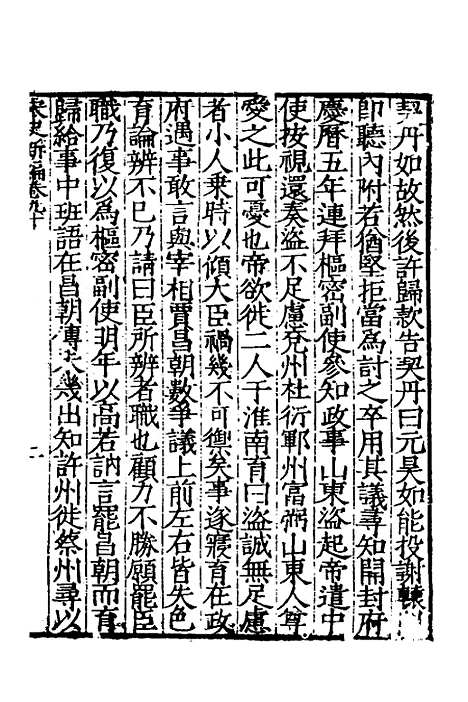 契丹如故然後許歸款告契丹曰元昊如能投謝轅門
即聽內附若猶堅拒當為討之卒用其議尋知開封府
慶曆五年連拜樞密副使參知政事山東盜起帝遣中
使按視還奏盜不足慮兗州杜衍鄆州富弼山東人尊
愛之此可憂也帝欲徙二人于淮南育曰盜誠無足慮
者小人乗時以傾大臣禍幾不可禦矣事遂寢育在政
府遇事敢言與宰相賈昌朝數爭議上前左右皆失色
育論辨不已乃請曰臣所辨者職也顧力不勝願罷臣
職乃復以為樞密副使明年以高若訥言罷昌朝而育
歸給事中班語在昌朝傳未幾出知許州徙蔡州尋以
宋史新編卷九十 二